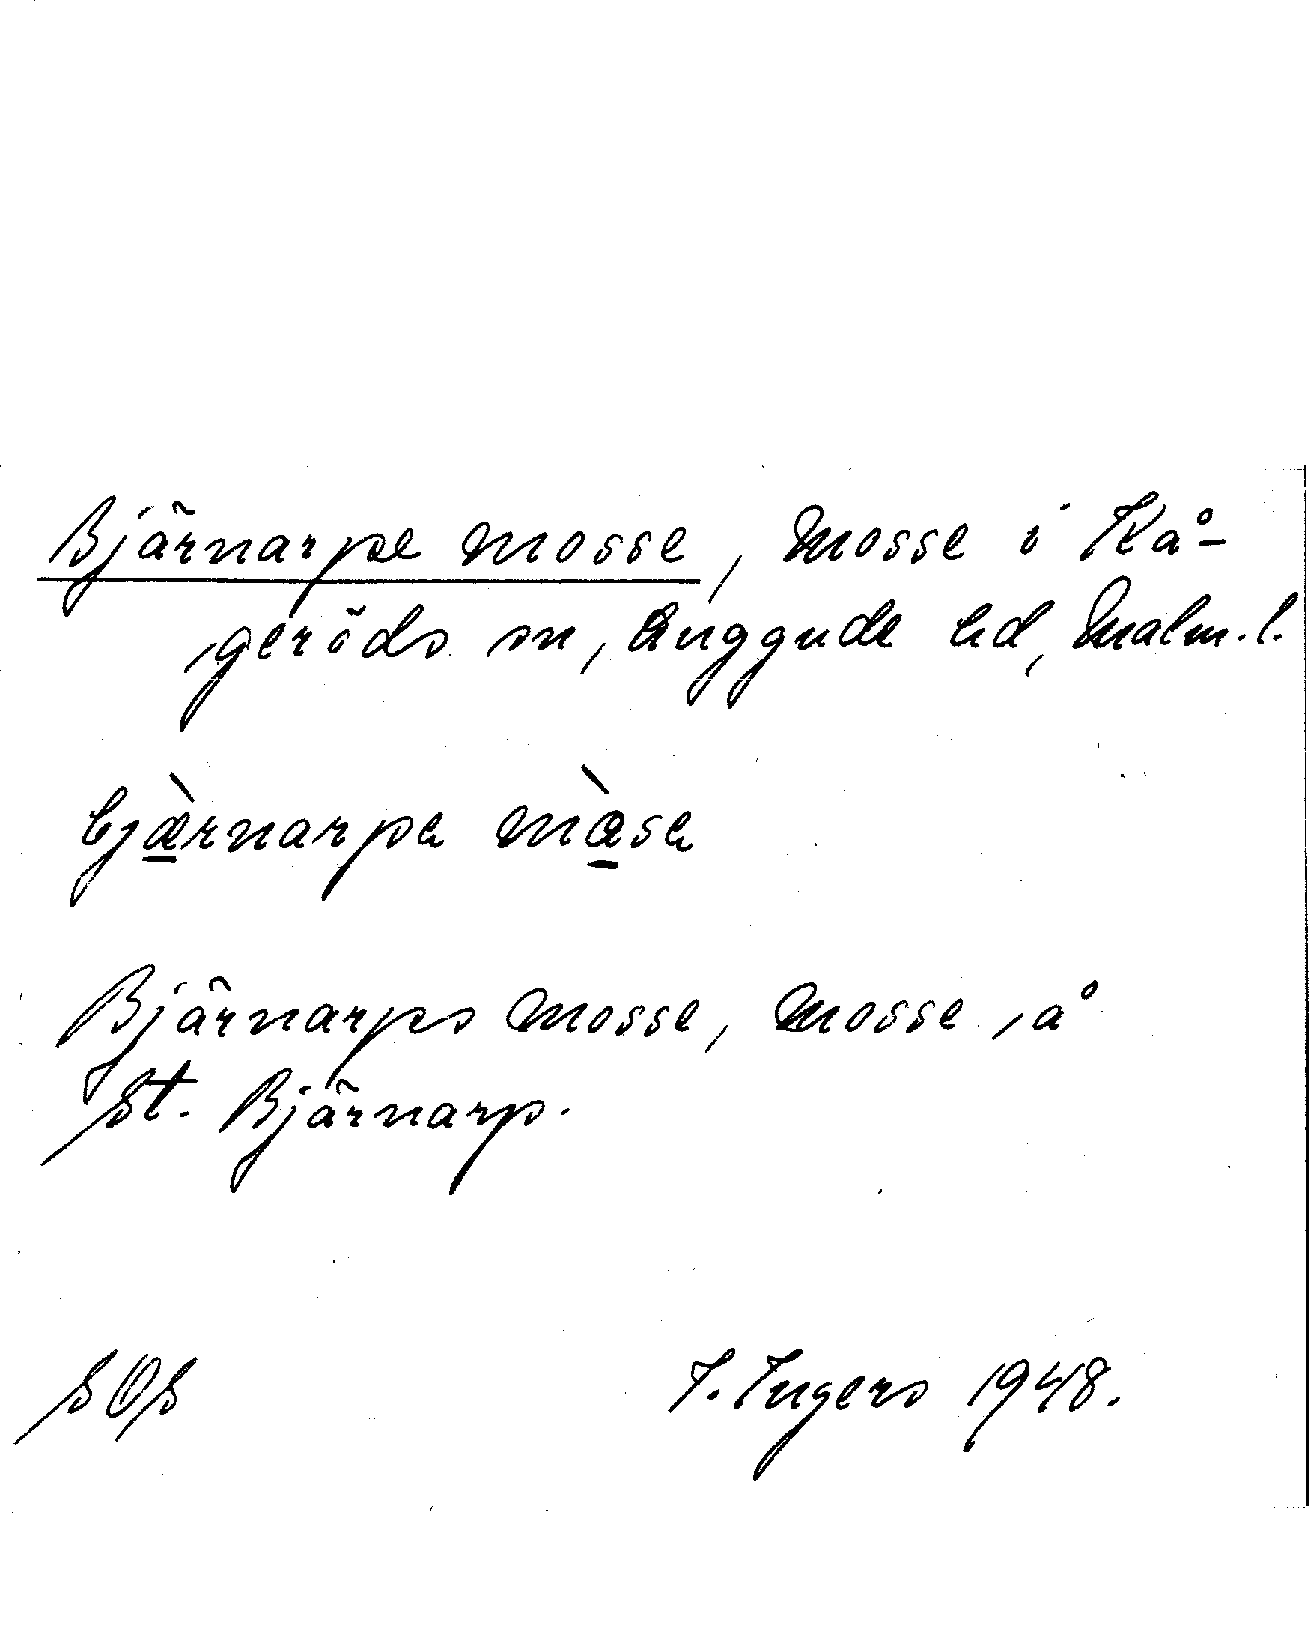 Bjärnarpe mosse, Mosse i Kå-
geröds sn, Luggude hd, Malm. l.
bjæ̀rnarpa màsa
Bjärnarps mosse, Mosse å
St. Bjärnarp.
SOS I. Ingers 1948.